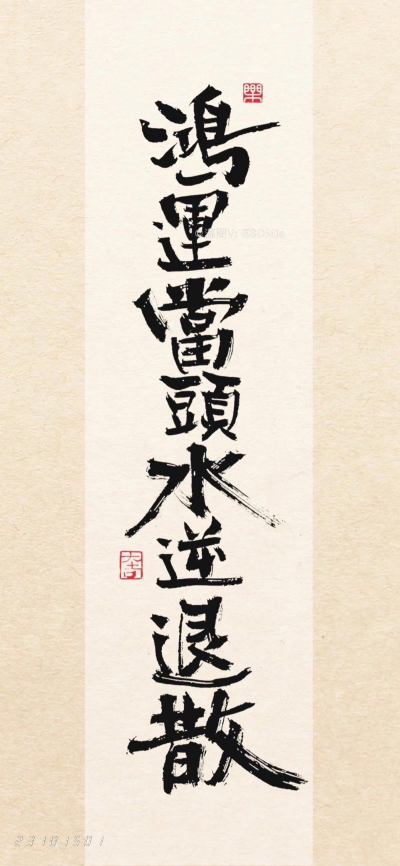 鴻運當頭水逆退散
23101501